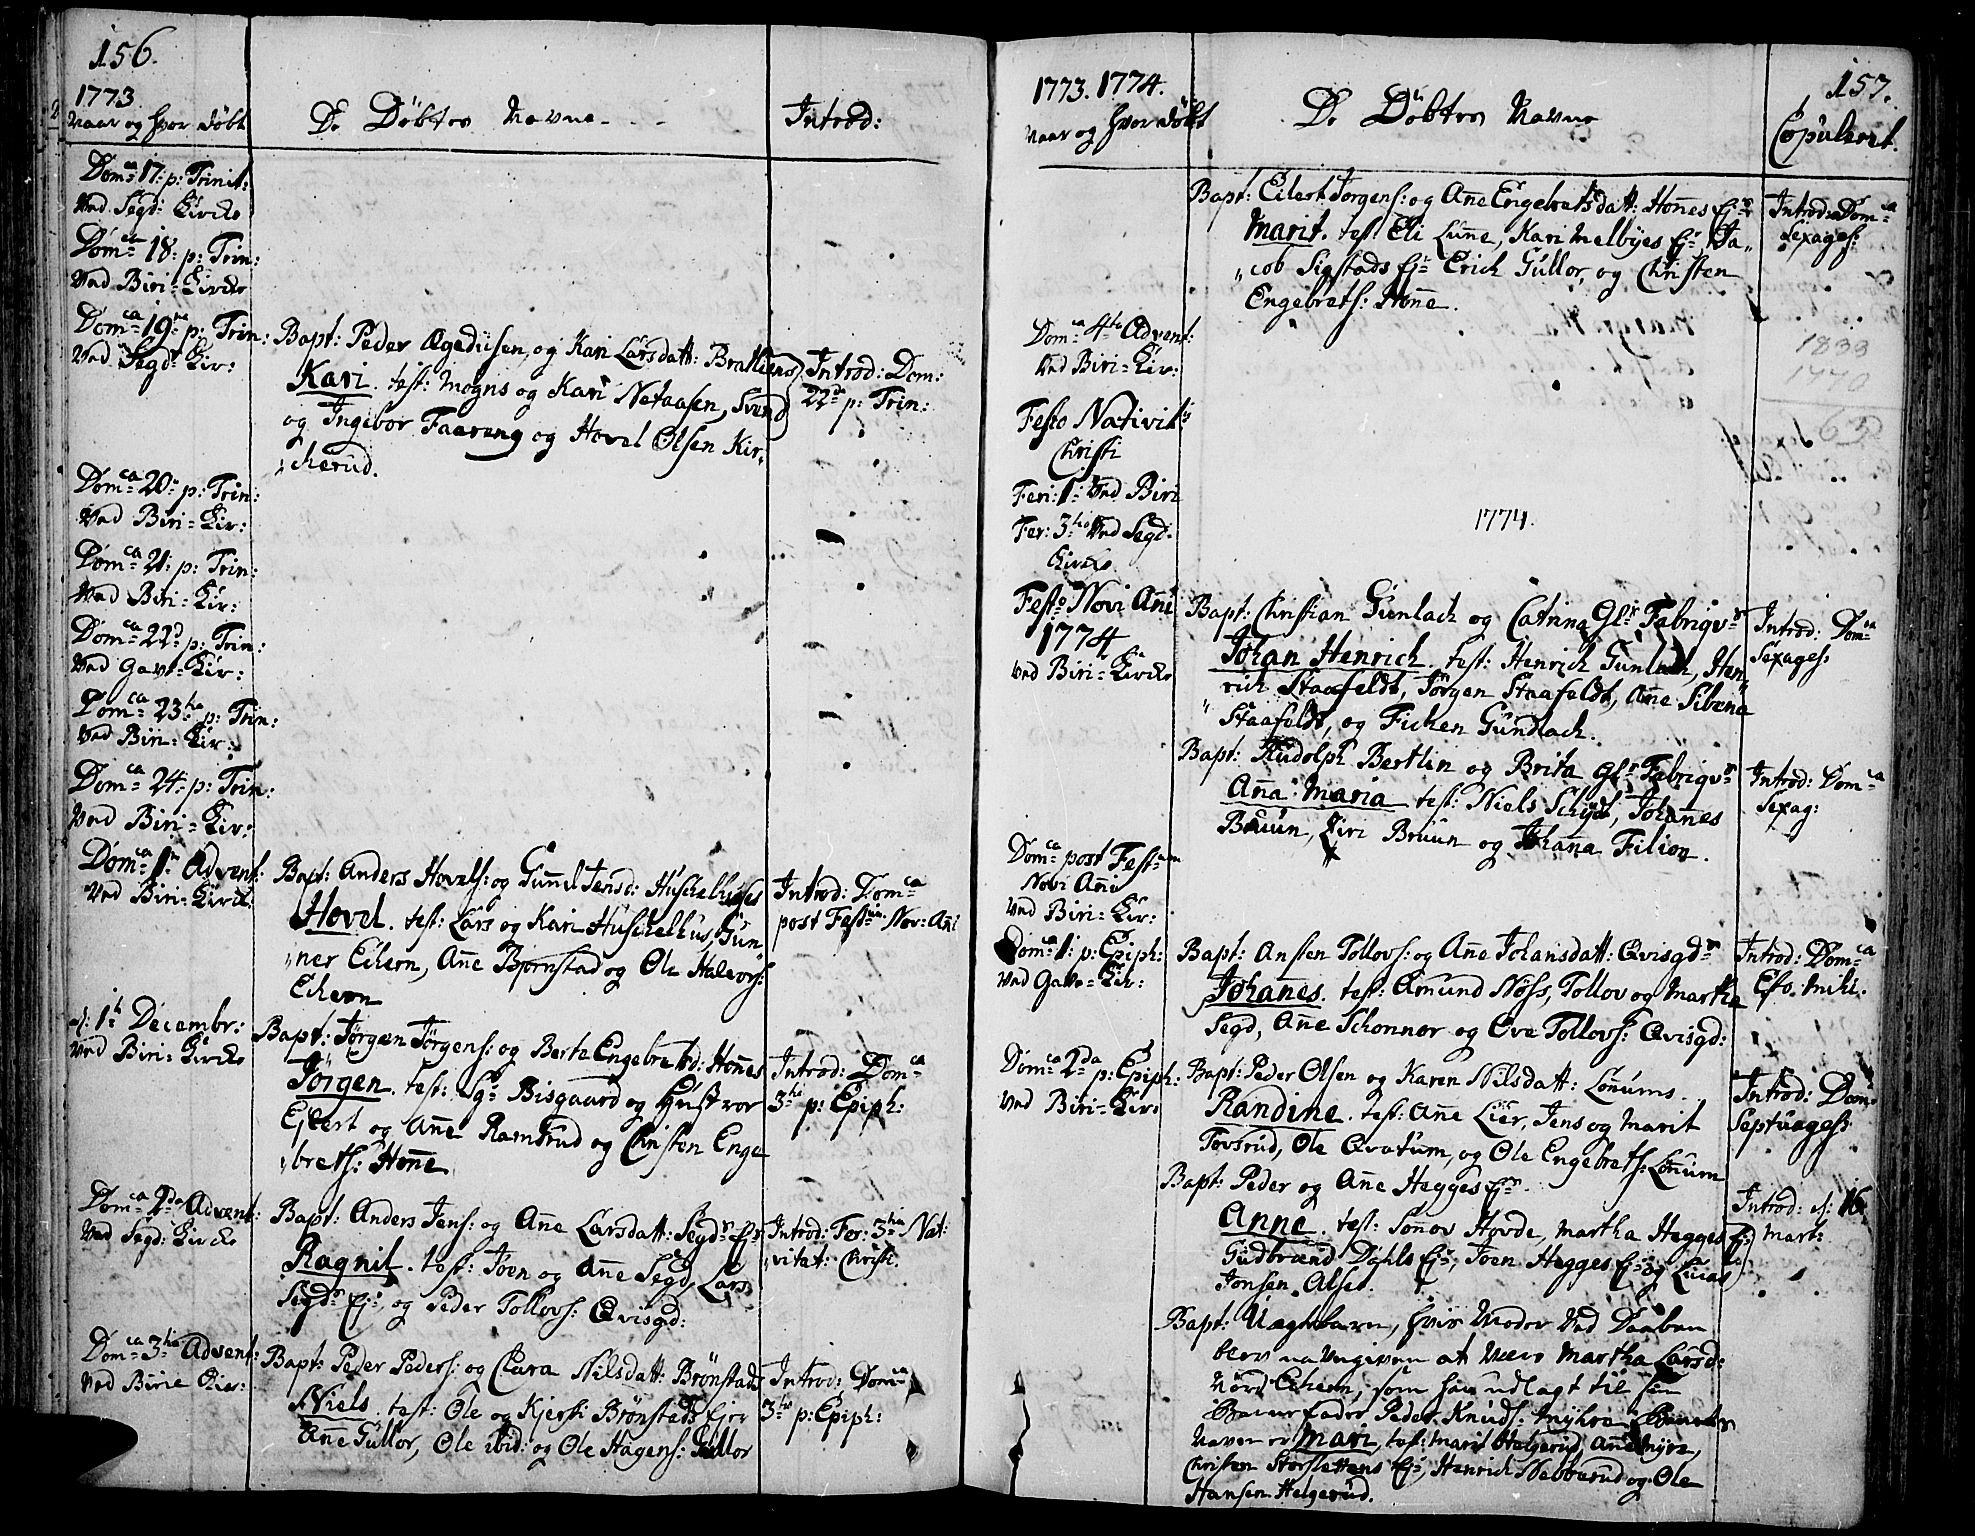 156.
1773
Naar og hvor døbt
De Døbtes Navne
Introd:
Dom: ca 17: p: Trinit:
Ved Segd: Kircke
Dom: ca 18: p: Trin:
Ved Biri=Kircke
Dom: ca 19: na p: Trin:
Ved Segd: Kir:
Bapt: Peder Ægediusen, og Kari Larsdatt: Brattens
Kari. test: Mogns og Kari Nætaasen, Svend
og Ingebor Faareng og Hovel Olsen Kir„
„cherud.
Introd: Dom:
22 da p: Trin:
Dom: ca 20: p: Trin:
Ved Biri=Kir:
Dom: ca 21: p: Trin:
Ved Biri=Kir:
Dom: ca 22 d p: Trin:
Ved Gavt=Kir:
Dom: ca 23: tia p: Trin:
Ved Biri=Kir:
Dom: ca 24: p: Trin:
Ved Biri=Kir:
Dom: ca 1: Advent:
Ved Biri=Kirck:
Bapt: Anders Hovels: og Gunnil Jensd: Huskelhuses
Hovel. test: Lars og Kari Huskelhus, Gun„
„ner Echern, Anne Bjørnstad og Ole Halvors:
Echern
Introd: Dom ca
post Fest: um Nov: Ani
d: 1 t Decembr:
Ved Biri=Kircke
Bapt: Jørgen Jørgens: og Berte Engebretsd: Hønes
Jørgen. test: Sgr Bisgaard og Hustroe
Ejlert og Anne Ramsrud og Christen Enge
„brets: Hønne
Introd: Dom ca
3 tia p: Epiph:
Dom: ca 2 da Advent:
Ved Segd: Kircke
Bapt: Anders Jens: og Anne Larsdatt: Segd: Ejr
Ragnil. test: Joen og Anne Segd, Lars
Segds Ejr, og Peder Tollovs: Qvisgd:
Introd: Fer: 3 tia Nat:
„vitat: Christi.
Dom: ca 3 tia Advent:
Ved Birie Kir:
Bapt: Peder Peders: og Clara Nilsdatt: Brønstads
Niels. test: Ole og Kjersti Brønstads Ejer
Anne Gullor, Ole ibid: og Ole Hagens: Gullor
Introd: Dom ca
3 tia p: Epiph:
1773. 1774.
Naar og hvor døbt
De Døbtes Navne
157.
Copulert.
Bapt: Eilert Jørgens: og Anne Engebretsdatt: Hønnes Ejr
Marit. test: Eli Lunne, Kari Melbyes Ejr Ja„
„cob Sigstads Ejr Erich Gullor, og Christen
Engebrets: Hønne.
Introd: Dom: ca
Sexages:
Dom: ca 4 ta Advent:
Ved Biri=Kir:
1833
1770
63
Festo Nativit: is
Christi
Feri: 1: Ved Biri
Fer: 3 tia Ved Segd:
Kircke
1774.
Festo Novi Ani
1774
Ved Biri=Kircke
Bapt: Christian Gunlach og Catrina Gl: Fabriqvr
Johan Henrich. test: Henrich Gunlach, Hen„
„rich Staafeldt, Jørgen Staafeldt, Anne Sibena
Staafeldt, og Fichen Gundlach.
Introd: Dom: ca
Sexages:
Bapt: Rudolph Bertlin og Brita Gl: Fabriqvr
Anna Maria test: Niels Schydt, Johannes
Bruun, Siri Bruun og Johana Filion.
Introd: Dom: ca
Sexag:
Dom: ca post Fest: um
Novi Ani
Ved Biri=Kir:
Dom: ca 1: p: Epiph:
Ved Gavt=Kir:
Bapt: Ansten Tollovs: og Anne Johansdatt: Qvisgdr
Johanes. test: Amund Nøss, Tollov og Martha
Segd, Anne Schonnor og Ove Tollovs: Qvisgd:
Introd: Dom: ca
Esto mihi.
Dom: ca 2 da p: Epiph:
Ved Biri=Kir:
Bapt: Peder Olsen og Karen Nilsdatt: Lønums.
Randine. test: Anne Lier, Jens og Marit
Tovsrud, Ole Qvatum, og Ole Engebrets: Lønum
Introd: Dom:
Septuages:
Bapt: Peder og Anne Hegges Ejr
Anne. test: Sønnov Hovde, Martha Hegges Ejr
Gudbrand Dahls Ejr, Joen Hegges Ejr og Lucas
Jonsen Alset.
Introd: d: 16
Mart:
Bapt: Uægtebarn, hvis Moder Ved Daaben
blev na Angiven at være Martha Larsd:
Nørd Echern, som har udlagt til sin
Barnefader Peder Knuds: Myhre Barnets
Navn er Mari, test: Marit Helgerud, Anne Myre,
Christen Storslettens Ejr, Henrich Nebberud og Ole
Hansen Helgerud.